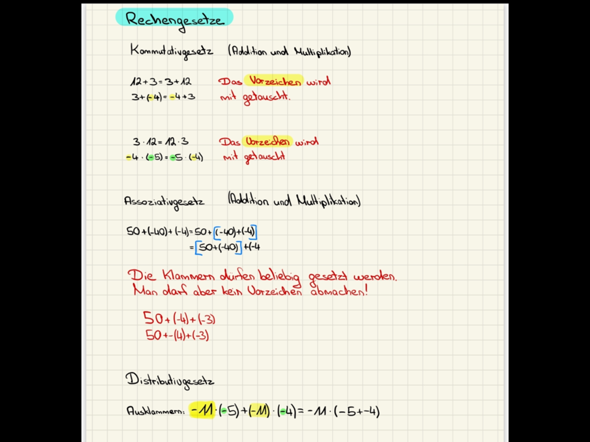 Rechengesetze
Kommutativgesetz (Addition und Multiplikation)
12+3=3+12 Das Vorzeichen wird
3+(-4)=-4+3 mit getauscht.
3·12=12·3 Das Vorzeichen wird
-4·(-5)=-5·(-4) mit getauscht
Assoziativgesetz (Addition und Multiplikation)
50+(-40)+(-4)=50+[(-40)+(-4)]
=[50+(-40)]+(-4
Die Klammern dürfen beliebig gesetzt werden.
Man darf aber kein Vorzeichen abmachen!
50+(-4)+(-3)
50+-(4)+(-3)
Distributivgesetz
Ausklammern: -11·(-5)+(-11)·(-4)=-11·(-5+-4)